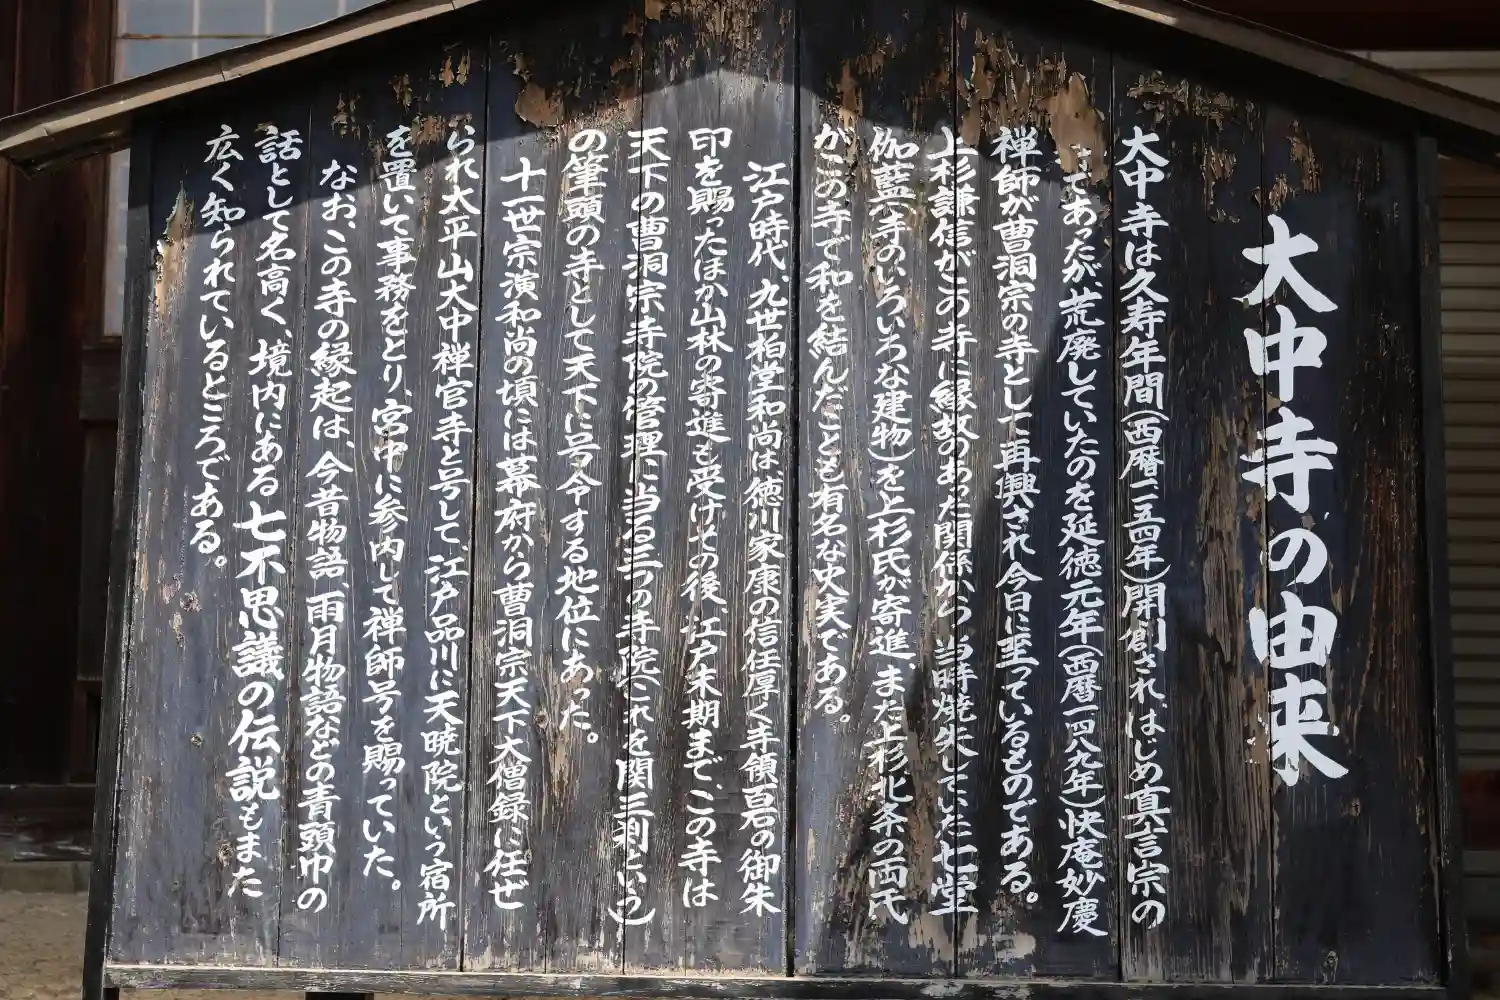 大中寺の由来
大中寺は久寿年間(西暦一一五四年)開創され、はじめ真言宗の
寺であったが、荒廃していたのを延徳元年(西暦一四八九年)快庵妙慶
禅師が曹洞宗の寺として再興され今日に至っているものである。
上杉謙信がこの寺に縁故のあった関係から、当時焼失していた七堂
伽藍(寺のいろいろな建物)を上杉氏が寄進、また上杉北条の両氏
がこの寺で和を結んだことも有名な史実である。
江戸時代、九世柏堂和尚は、徳川家康の信任厚く寺領百石の御朱
印を賜ったほか山林の寄進も受けその後、江戸末期まで、この寺は
天下の曹洞宗寺院の管理に当る三つの寺院(これを関三刹という)
の筆頭の寺として天下に号令する地位にあった。
十一世宗演和尚の頃には幕府から曹洞宗天下大僧録に任ぜ
られ太平山大中禅官寺と号して、江戸品川に天暁院という宿所
を置いて事務をとり、宮中に参内して禅師号を賜っていた。
なお、この寺の縁起は、今昔物語、雨月物語などの青頭巾の
話として名高く、境内にある七不思議の伝説もまた
広く知られているところである。